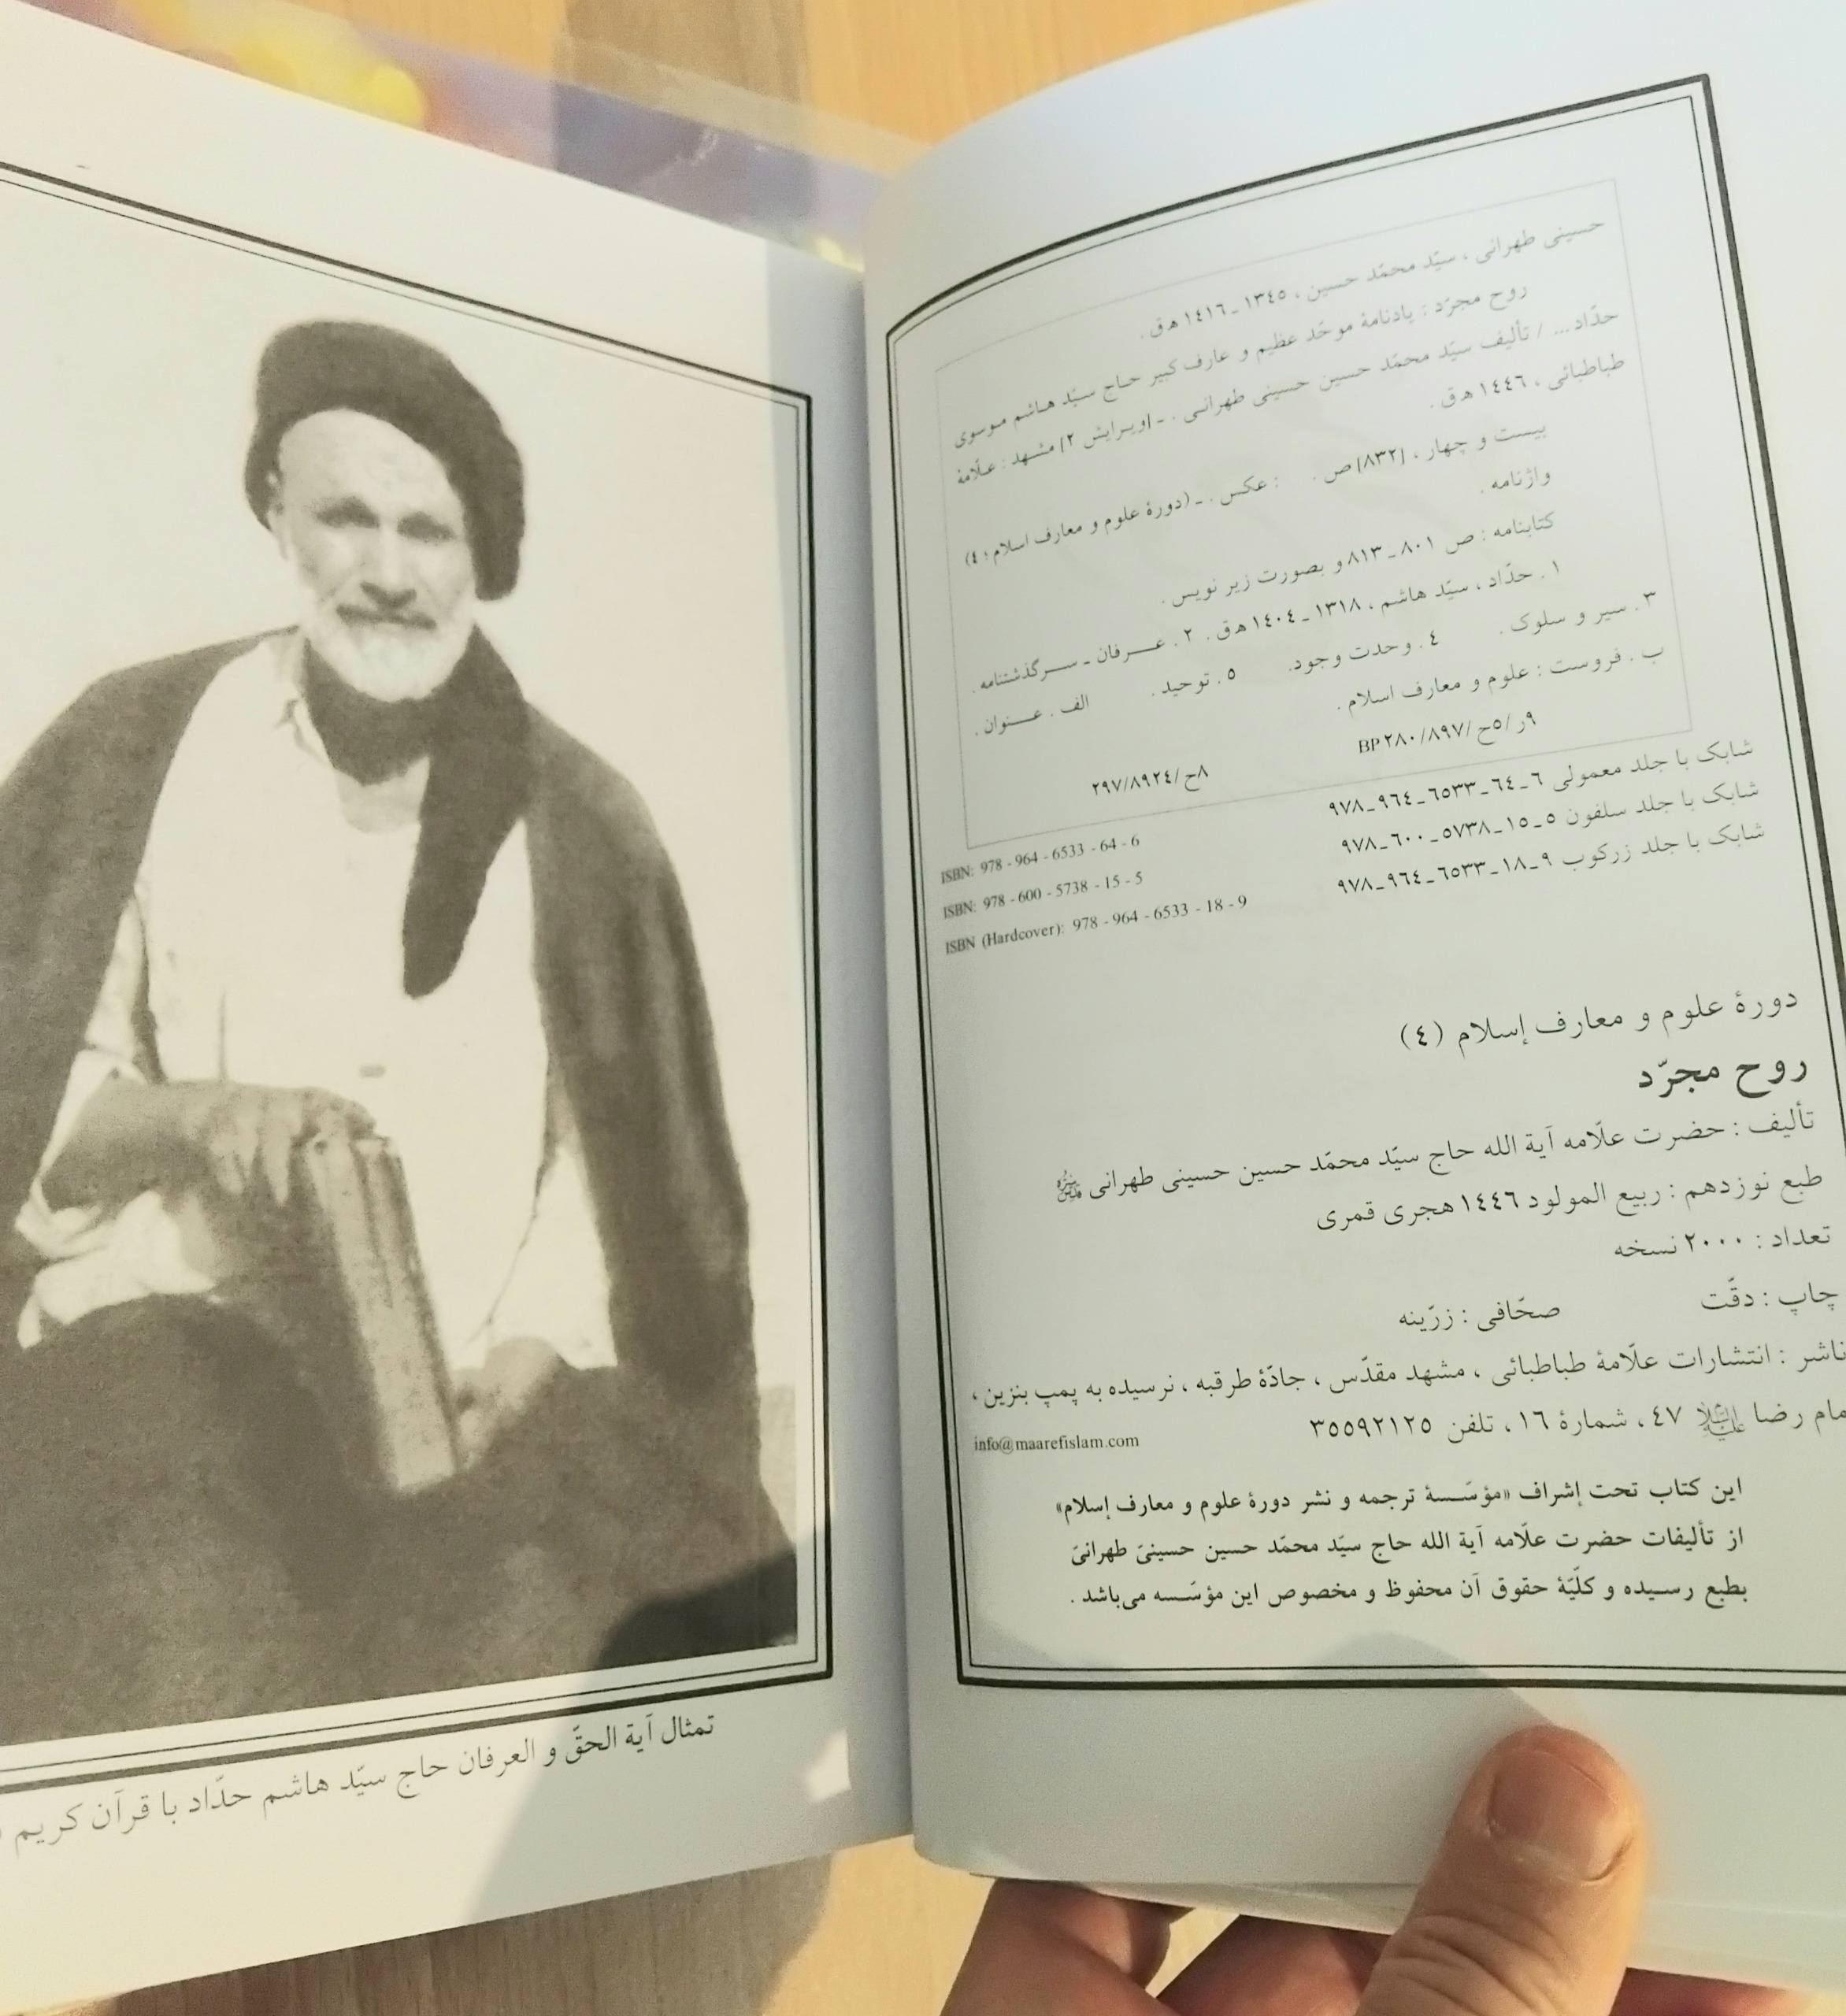 تمثال آیة الحقّ و العرفان حاج سیّد هاشم حدّاد با قرآن کریم
حسینی طهرانی ، سیّد محمّد حسین ، ١٣٤٥ ـ ١٤١٦ ه‍ ق .
روح مجرّد : یادنامهٔ موحّد عظیم و عارف کبیر حاج سیّد هاشم موسوی
حدّاد... / تألیف سیّد محمّد حسین حسینی طهرانی . ـ [ویرایش ٢] مشهد : علّامهٔ
طباطبائی ، ١٤٤٦ ه‍ ق .
بیست و چهار ، [٨٣٢] ص . : عکس . ـ (دورهٔ علوم و معارف اسلام ؛ ٤)
واژنامه .
کتابنامه : ص ٨٠١ ـ ٨١٣ و بصورت زیر نویس .
١ . حدّاد ، سیّد هاشم ، ١٣١٨ ـ ١٤٠٤ ه‍ ق . ٢ . عرفان ـ سرگذشتنامه .
٣ . سیر و سلوک . ٤ . وحدت وجود. ٥ . توحید . الف . عنوان .
ب . فروست : علوم و معارف اسلام .
٩ر /٥ح /٨٩٧/ ٢٨٠ BP
٨ح /٢٩٧/٨٩٢٤
شابک با جلد معمولی ٦ـ٦٤ـ٦٥٣٣ـ٩٦٤ـ٩٧٨
شابک با جلد سلفون ٥ـ١٥ـ٥٧٣٨ـ٦٠٠ـ٩٧٨
شابک با جلد زرکوب ٩ـ١٨ـ٦٥٣٣ـ٩٦٤ـ٩٧٨
ISBN: 978 - 964 - 6533 - 64 - 6
ISBN: 978 - 600 - 5738 - 15 - 5
ISBN (Hardcover): 978 - 964 - 6533 - 18 - 9
دورهٔ علوم و معارف إسلام (٤)
روح مجرّد
تألیف : حضرت علّامه آیة الله حاج سیّد محمّد حسین حسینی طهرانی
طبع نوزدهم : ربیع المولود ١٤٤٦ هجری قمری
تعداد : ٢٠٠٠ نسخه
چاپ : دقّت صحّافی : زرّینه
ناشر : انتشارات علّامهٔ طباطبائی ، مشهد مقدّس ، جادّهٔ طرقبه ، نرسیده به پمپ بنزین ،
رضا علیه‌السلام ٤٧ ، شمارهٔ ١٦ ، تلفن ٣٥٥٩٢١٢٥
info@maarefislam.com
این کتاب تحت إشراف «مؤسّسهٔ ترجمه و نشر دورهٔ علوم و معارف إسلام»
از تألیفات حضرت علّامه آیة الله حاج سیّد محمّد حسین حسینیّ طهرانیّ
بطبع رسیده و کلّیّهٔ حقوق آن محفوظ و مخصوص این مؤسّسه می‌باشد .